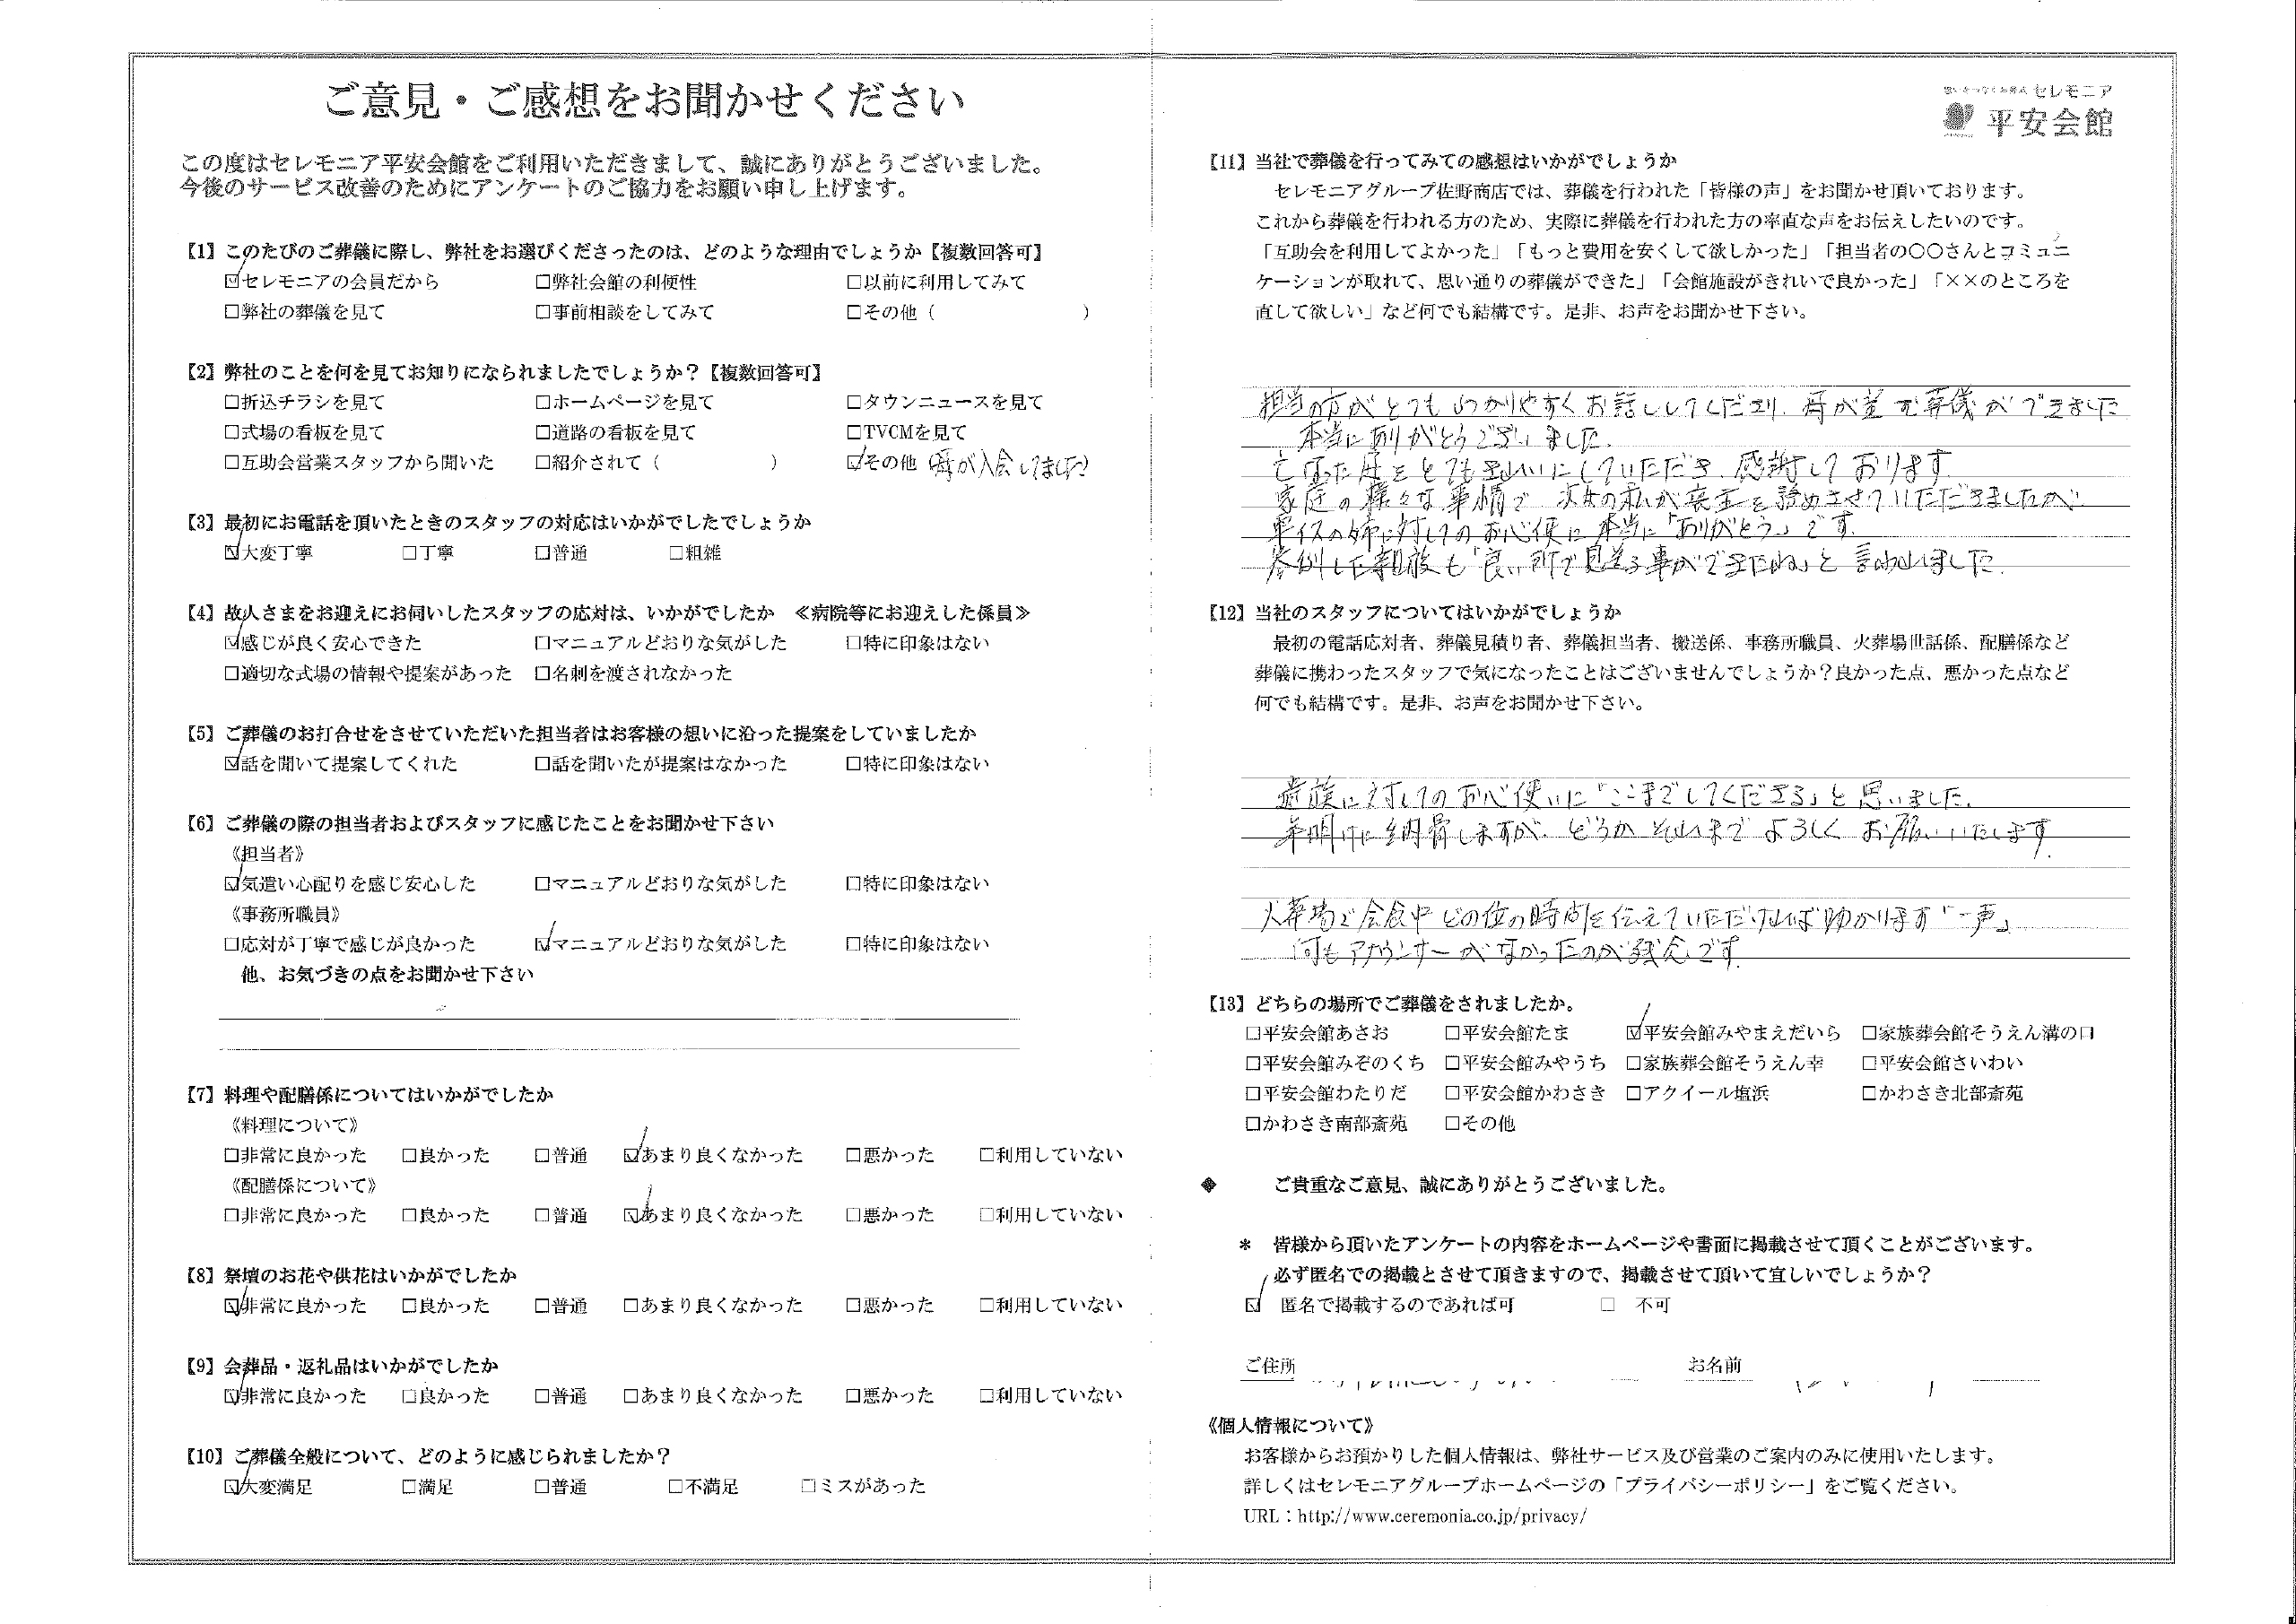 ご意見・ご感想をお聞かせください
この度はセレモニア平安会館をご利用いただきまして、誠にありがとうございました。
今後のサービス改善のためにアンケートのご協力をお願い申し上げます。
【1】このたびのご葬儀に際し、弊社をお選びくださったのは、どのような理由でしょうか【複数回答可】
☑セレモニアの会員だから □弊社会館の利便性 □以前に利用してみて
□弊社の葬儀を見て □事前相談をしてみて □その他（ ）
【2】弊社のことを何を見てお知りになられましたでしょうか？【複数回答可】
□折込チラシを見て □ホームページを見て □タウンニュースを見て
□式場の看板を見て □道路の看板を見て □TVCMを見て
□互助会営業スタッフから聞いた □紹介されて（ ） ☑その他（母が入会してました）
【3】最初にお電話を頂いたときのスタッフの対応はいかがでしたでしょうか
☑大変丁寧 □丁寧 □普通 □粗雑
【4】故人さまをお迎えにお伺いしたスタッフの応対は、いかがでしたか ≪病院等にお迎えした係員≫
☑感じが良く安心できた □マニュアルどおりな気がした □特に印象はない
□適切な式場の情報や提案があった □名刺を渡されなかった
【5】ご葬儀のお打合せをさせていただいた担当者はお客様の想いに沿った提案をしていましたか
☑話を聞いて提案してくれた □話を聞いたが提案はなかった □特に印象はない
【6】ご葬儀の際の担当者およびスタッフに感じたことをお聞かせ下さい
《担当者》
☑気遣い心配りを感じ安心した □マニュアルどおりな気がした □特に印象はない
《事務所職員》
□応対が丁寧で感じが良かった ☑マニュアルどおりな気がした □特に印象はない
他、お気づきの点をお聞かせ下さい
【7】料理や配膳係についてはいかがでしたか
《料理について》
□非常に良かった □良かった □普通 ☑あまり良くなかった □悪かった □利用していない
《配膳係について》
□非常に良かった □良かった □普通 ☑あまり良くなかった □悪かった □利用していない
【8】祭壇のお花や供花はいかがでしたか
☑非常に良かった □良かった □普通 □あまり良くなかった □悪かった □利用していない
【9】会葬品・返礼品はいかがでしたか
☑非常に良かった □良かった □普通 □あまり良くなかった □悪かった □利用していない
【10】ご葬儀全般について、どのように感じられましたか？
☑大変満足 □満足 □普通 □不満足 □ミスがあった
セレモニア
平安会館
【11】当社で葬儀を行ってみての感想はいかがでしょうか
セレモニアグループ佐野商店では、葬儀を行われた「皆様の声」をお聞かせ頂いております。
これから葬儀を行われる方のため、実際に葬儀を行われた方の率直な声をお伝えしたいのです。
「互助会を利用してよかった」「もっと費用を安くして欲しかった」「担当者の〇〇さんとコミュニ
ケーションが取れて、思い通りの葬儀ができた」「会館施設がきれいで良かった」「××のところを
直して欲しい」など何でも結構です。是非、お声をお聞かせ下さい。
担当の方がとてもわかりやすくお話ししてくださり、母が望む葬儀ができました
本当にありがとうございました。
亡なった母をとてもきれいにしていただき、感謝しております
家庭の様々な事情で 次女の私が喪主を務めさせていただきましたが
車イスの姉に対してのお心使に本当に「ありがとう」です。
参列した親族も「良い所で見送る事ができたね」と言われました。
【12】当社のスタッフについてはいかがでしょうか
最初の電話応対者、葬儀見積り者、葬儀担当者、搬送係、事務所職員、火葬場世話係、配膳係など
葬儀に携わったスタッフで気になったことはございませんでしょうか？良かった点、悪かった点など
何でも結構です。是非、お声をお聞かせ下さい。
遺族に対してのお心使いに「ここまでしてくださる」と思いました。
年明けに納骨しますが、どうかそれまでよろしくお願いいたします。
火葬場で会食中どの位の時間を伝えていただければ助かります「一声」
何もアナウンサーがなかったのが残念です。
【13】どちらの場所でご葬儀をされましたか。
□平安会館あさお □平安会館たま ☑平安会館みやまえだいら □家族葬会館そうえん溝の口
□平安会館みぞのくち □平安会館みやうち □家族葬会館そうえん幸 □平安会館さいわい
□平安会館わたりだ □平安会館かわさき □アクイール塩浜 □かわさき北部斎苑
□かわさき南部斎苑 □その他
◆ ご貴重なご意見、誠にありがとうございました。
＊ 皆様から頂いたアンケートの内容をホームページや書面に掲載させて頂くことがございます。
必ず匿名での掲載とさせて頂きますので、掲載させて頂いて宜しいでしょうか？
☑ 匿名で掲載するのであれば可 □ 不可
ご住所 お名前
《個人情報について》
お客様からお預かりした個人情報は、弊社サービス及び営業のご案内のみに使用いたします。
詳しくはセレモニアグループホームページの「プライバシーポリシー」をご覧ください。
URL：http://www.ceremonia.co.jp/privacy/